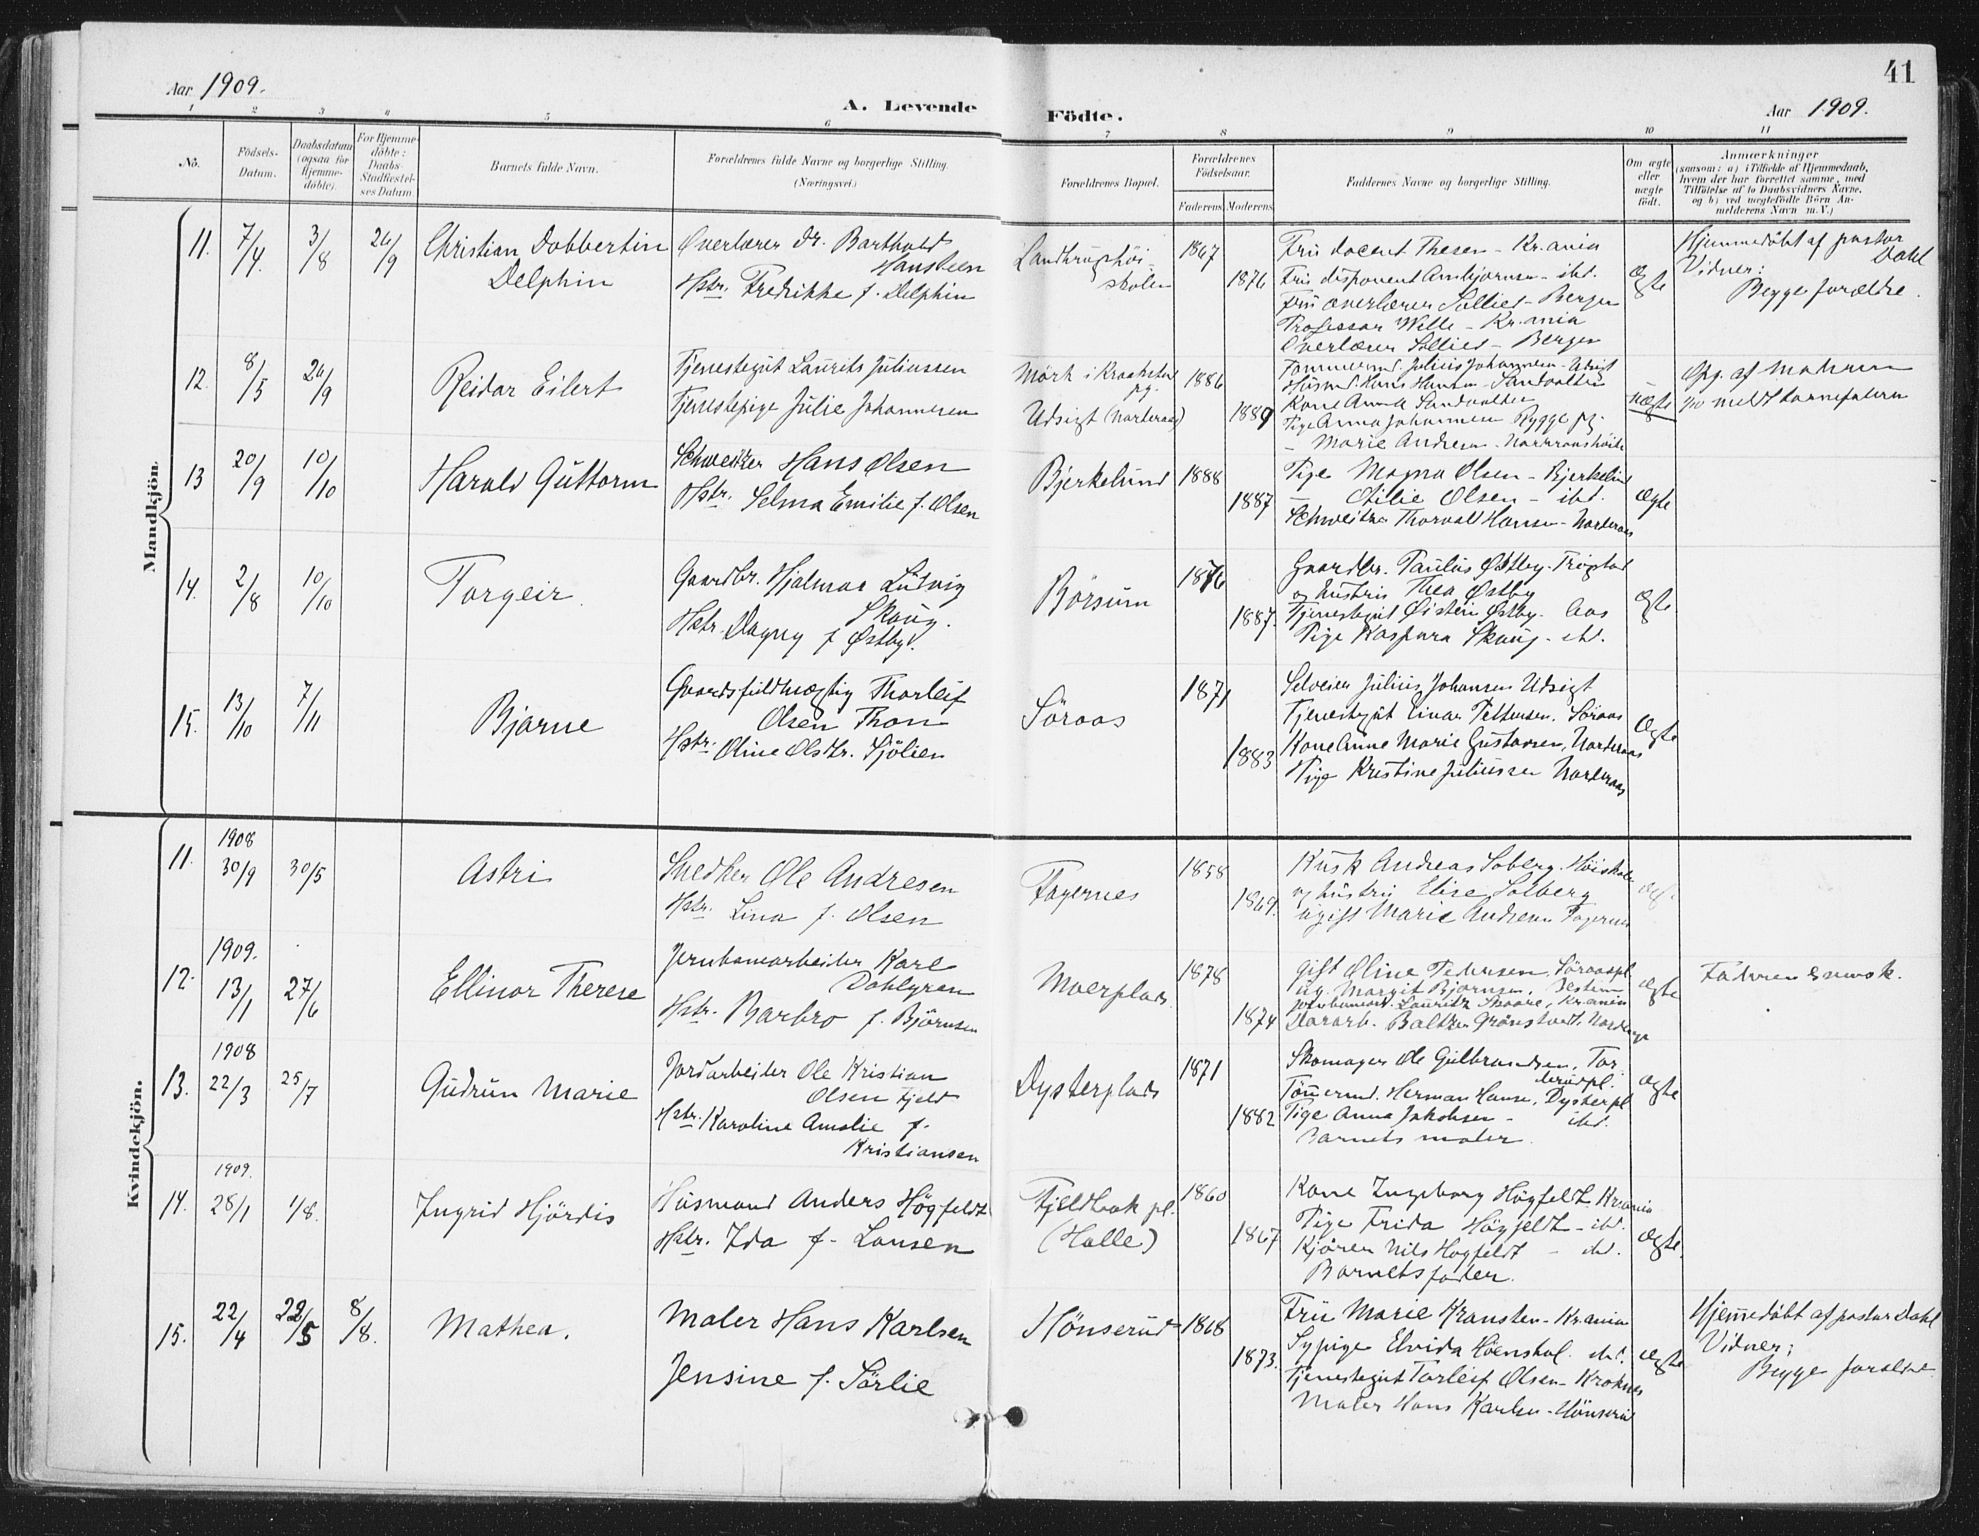 Aar 1909.
A. Levende
Födte.
Aar 1909.
41
1 2 3 4 5 6 7 8 9 10 11
No.
Födsels-
Datum.
Daabsdatum
(ogsaa for
Hjemme-
döbte).
For Hjemme-
döbte:
Daabs-
Stadfæstel-
ses Datum.
Barnets fulde Navn.
Forældrenes fulde Navne og borgerlige Stilling.
(Næringsvei.)
Forældrenes Bopæl.
Forældrenes
Födselsaar.
Faderens Moderens
Faddernes Navne og borgerlige Stilling.
Om ægte
eller
uægte
födt.
Anmærkninger
(saasom: a) i Tilfælde af Hjemmedaab,
hvem der har forrettet samme, med
Tilföielse af to Daabsvidners Navne,
og b) ved uegtefödte Börn An-
melderens Navn m. V.)
Mandkjön.
11. 7/4. 3/8 26/9
Christian Dobbertin
Delphin
Overlærer Dr. Barthold
Hansteen
Hstr. Fredrikke f. Delphin
Landbrugshöi-
skolen
1867
1876
Fru docent Thesen - Kr.ania
Fru disponent - ibd.
Fru overlærer Sollied - Bergen
Professor Wille - Kr.ania
Overlærer Sollied - Bergen
Ægte
Hjemmedöbt af pastor
Dahl
Vidner:
Begge forældre.
12. 8/5 26/9
Reidar Eilert
Tjenestegut Laurits Juliussen
Tjenestepige Julie Johannesen
Mörk i Kraakstad
pg.
Udsigt (Norderaas)
1886
1889
Tömmermd. Julius Johannesen - Udsigt
Husmd. Hans Hansen - Sandvolden
Kone Anna Sandvolden
Pige Anna Johannesen Rygge pg.
— Marie Andersen -
uægte
Opg. af Moderen
som barnefaderen
13 20/9 10/10
Harald Guttorm
Schweitzer Hans Olsen
Hstr. Selma Emilie f. Olsen
Bjerkelund
1888
1887
Pige Magna Olsen - Bjerkelund
— Otilie Olsen - ibd.
Schweitzer Thorvald Hansen - Norderaas
Ægte
14. 2/8 10/10
Torgeir.
Gaardbr. Hjalmar Ludvig
Skaug.
Hstr. Dagny f Østby.
Börsum
1876
1887.
Gaardbr. Paulus Østby - Trögstad
og hustru Thea Østby
Tjenestegut Øistein Østby - Aas
Pige Kaspara Skaug - ibd.
Ægte
15. 13/10 7/11
Bjarne
Gaardsfuldmægtig Thorleif
Olsen Thon
Hstr. Oline Olsdtr. Sjölien
Söraas
1871
1883
Selveier Julius Johansen Udsigt
Tjenestegut Einar Pettersen, Söraas
Kone Anne Marie Gustavsen, Norderaas
Pige Kristine Juliussen Norderaas
Ægte
Kvindekjön.
11. 1908
30/9 30/5
Astri
Snedker Ole Andresen
Hstr. Lina f. Olsen
Fagernes
1858
1869.
Kusk Andreas Solberg. Höiskolen
og hustru Elise Solberg
ugift Marie Andresen Fagernes
12. 1909.
13/1 27/6
Ellinor Therese
Jernbanearbeider Karl
Dahlgren
Hstr. Barbro f. Björnsen
Moerplads
1878
1874
Gift Oline Pedersen, Söraaspl.
Ug. Margit Bjørnsen,
Jernbanearb. Lauritz Skaare, Kr.ania
Dagarb. Baltzer Grönstvedt, Norderaas
ægte
Faderen svensk.
13. 1908
22/3 25/7
Gudrun Marie
Jordarbeider Ole Kristian
Olsen Fjeld
Hstr. Karoline Amalie f.
Kristiansen
Dysterplads
1871
1882
Skomager Ole Gulbrandsen, Tor-
derudpl.
Tömmermd. Herman Hansen, Dysterpl
Pige Anna Jakobsen - ibd.
Barnets moder.
ægte
14. 1909.
28/1 1/8.
Ingrid Hjördis
Husmand Anders Högfeldt
Hstr. Ida f. Larsen
Fjeldbaak pl.
(Holle)
1860
1867
Kone Ingeborg Högfeldt Kr.ania
Pige Frida Högfeldt - ibd.
Kjörer Nils Hogfeldt - ibd.
Barnets fader.
ægte.
15. 22/4 22/5 8/8.
Mathea.
Maler Hans Karlsen
Jensine f. Sörlie
Hönserud
1868
1873.
Fru Marie Kransten - Kr.ania
Sypige Elvida - ibd.
Tjenestegut Torleif Olsen - Kroknes
Maler Hans Karlsen - Hönserud
ægte
Hjemmedöbt af pastor Dahl
Vidner:
Begge forældre